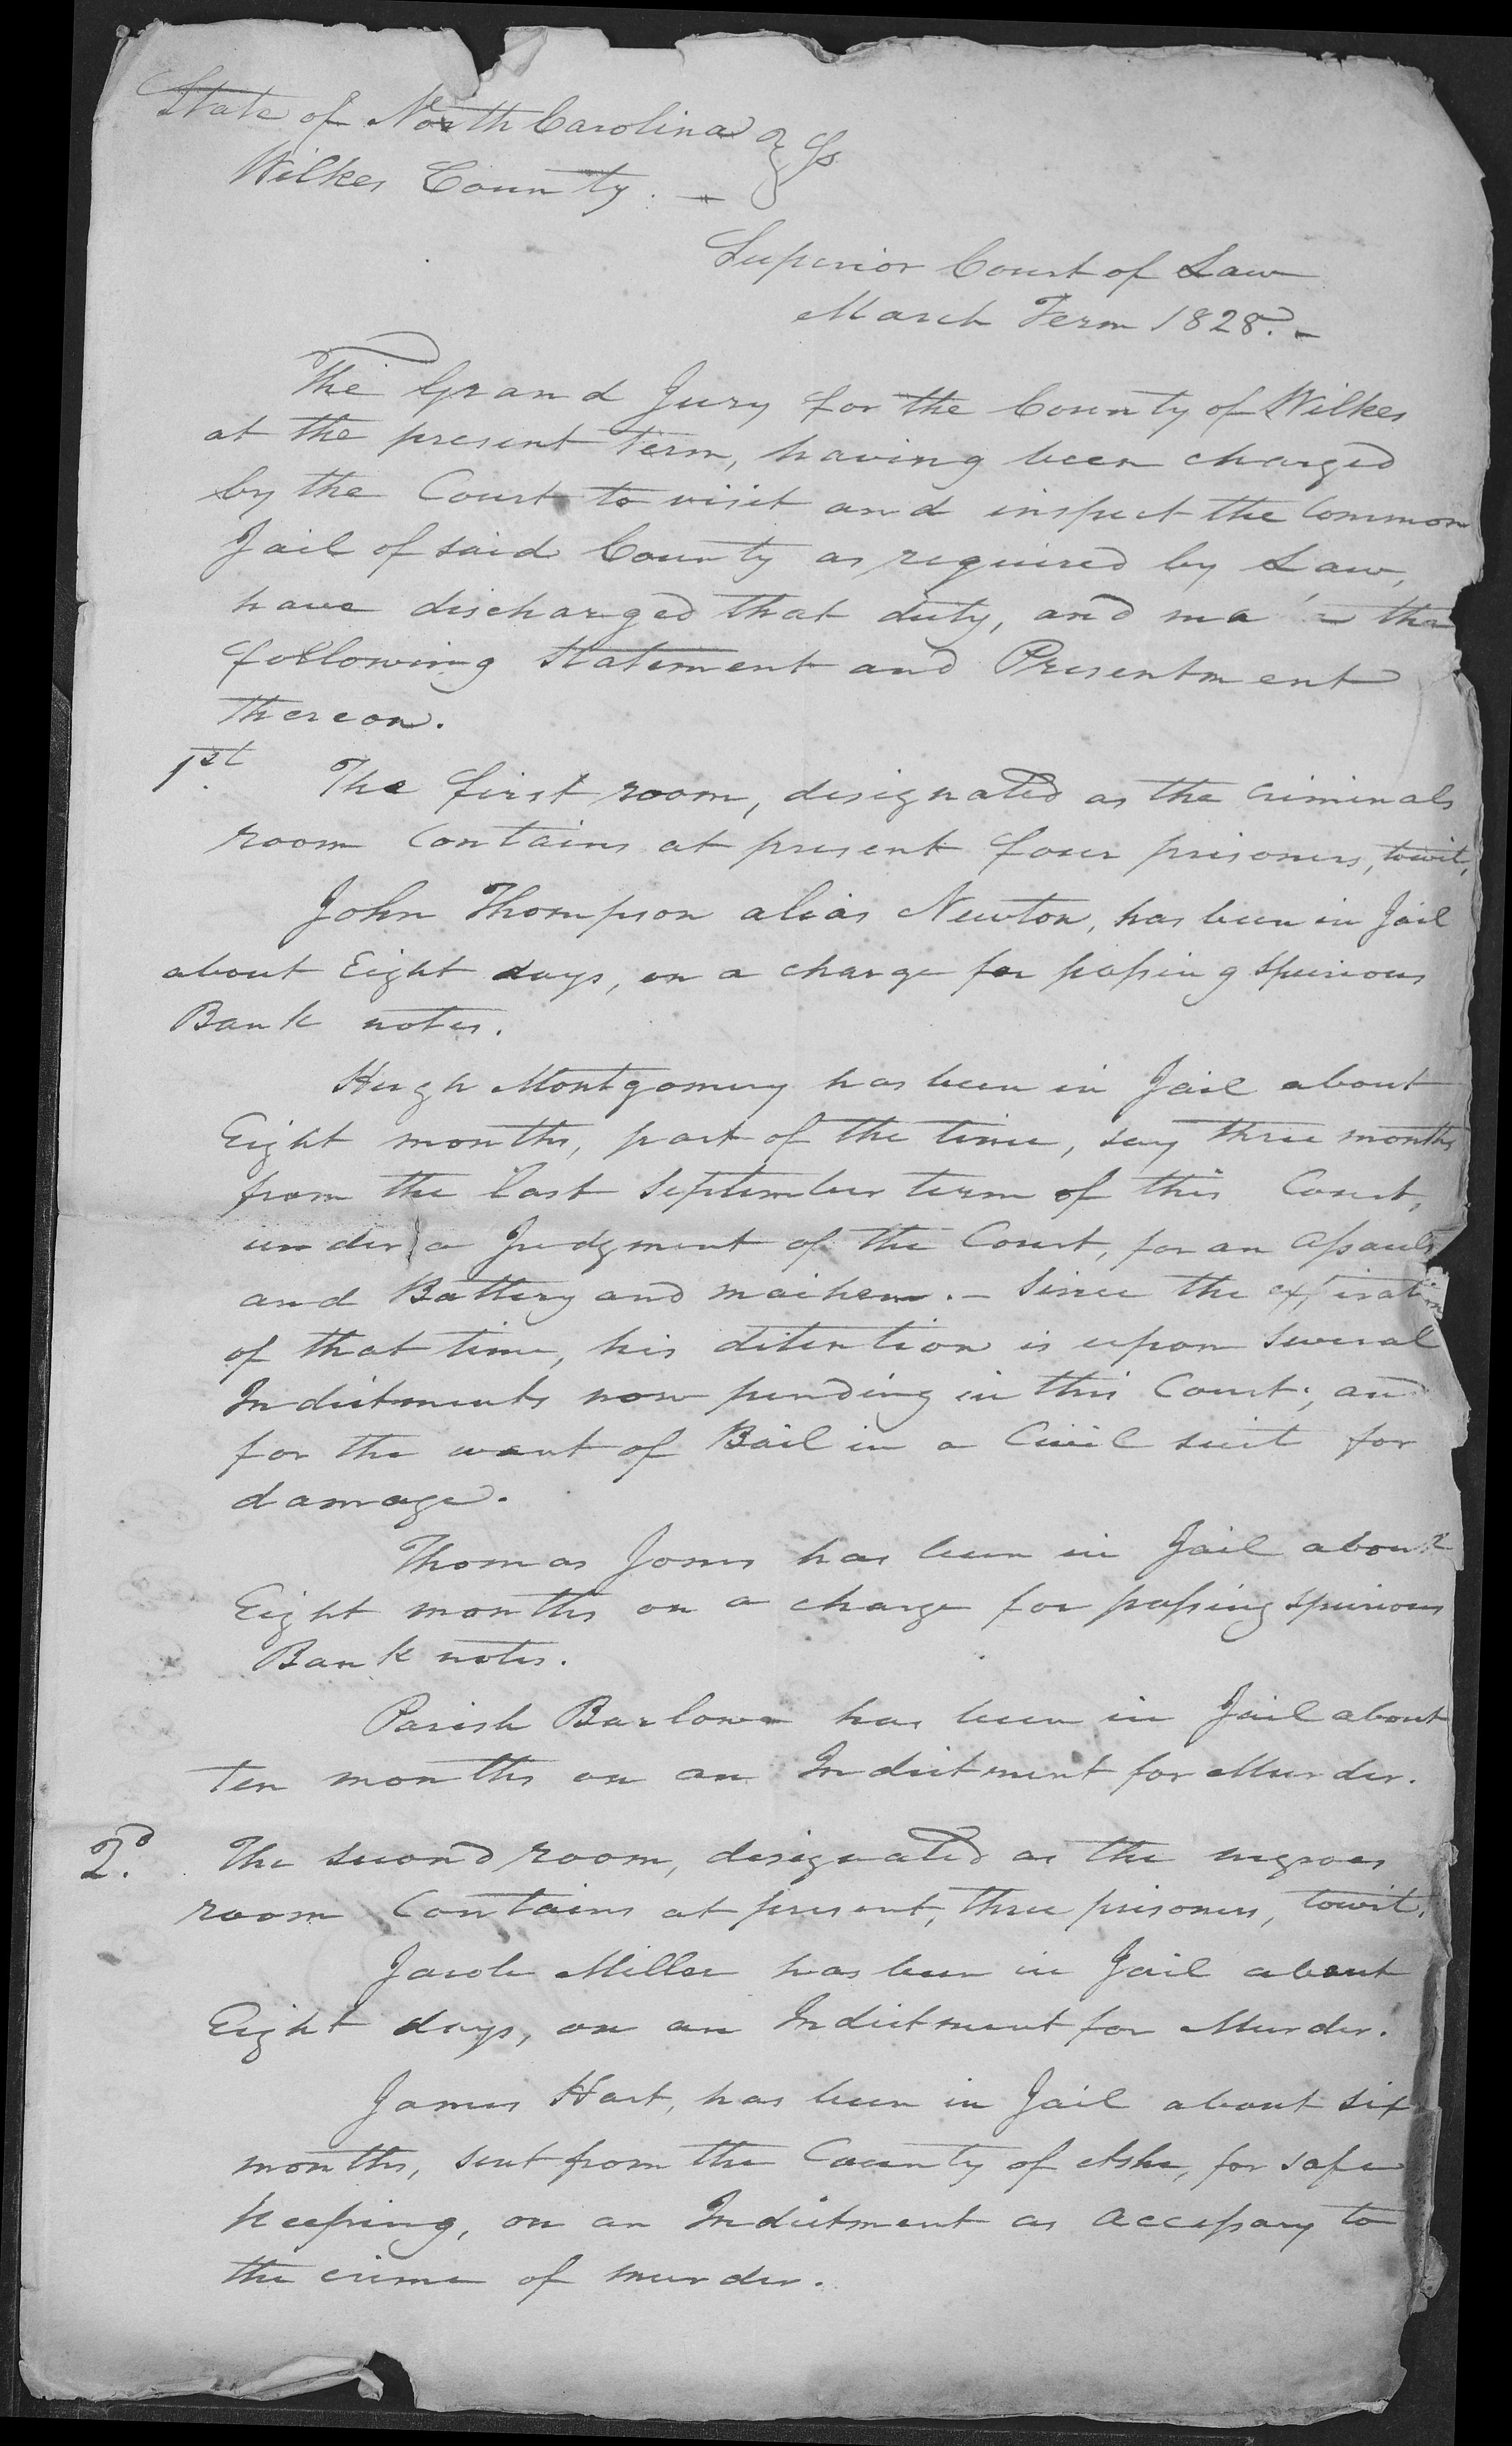 State of North Carolina } Ss
Wilkes County. —
Superior Court of Law
March Term 1828. —
The Grand Jury for the County of Wilkes
at the present Term, having been charged
by the Court to visit and inspect the Common
Jail of said County as required by Law,
have discharged that duty, and the
following Statement and Presentment
thereon.
1st. The first room, designated as the Criminals
room Contains at present four prisoners, towit,
John Thompson alias Newton, has been in Jail
about Eight days, on a charge for passing spurious
Bank notes.
Hugh Montgomery has been in Jail about
Eight months, part of the time, say three months
from the last September term of this Court,
under a Judgment of the Court, for an Assault
and Battery and maihem. — Since the expiration
of that time, his detention is upon several
Indictments now pending in this Court; and
for the want of Bail in a Civil suit for
damage.
Thomas Jones has been in Jail about
Eight months on a charge for passing spurious
Bank notes.
Parish Barlow has been in Jail about
Ten months on an Indictment for Murder.
2d. The second room, designated as the negroes
room Contains at present, three prisoners, towit.
Jacob Miller has been in Jail about
Eight days, on an Indictment for Murder.
James Hart, has been in Jail about six
months, sent from the County of Ashe, for safe
keeping, on an Indictment as accessary to
the crime of murder.